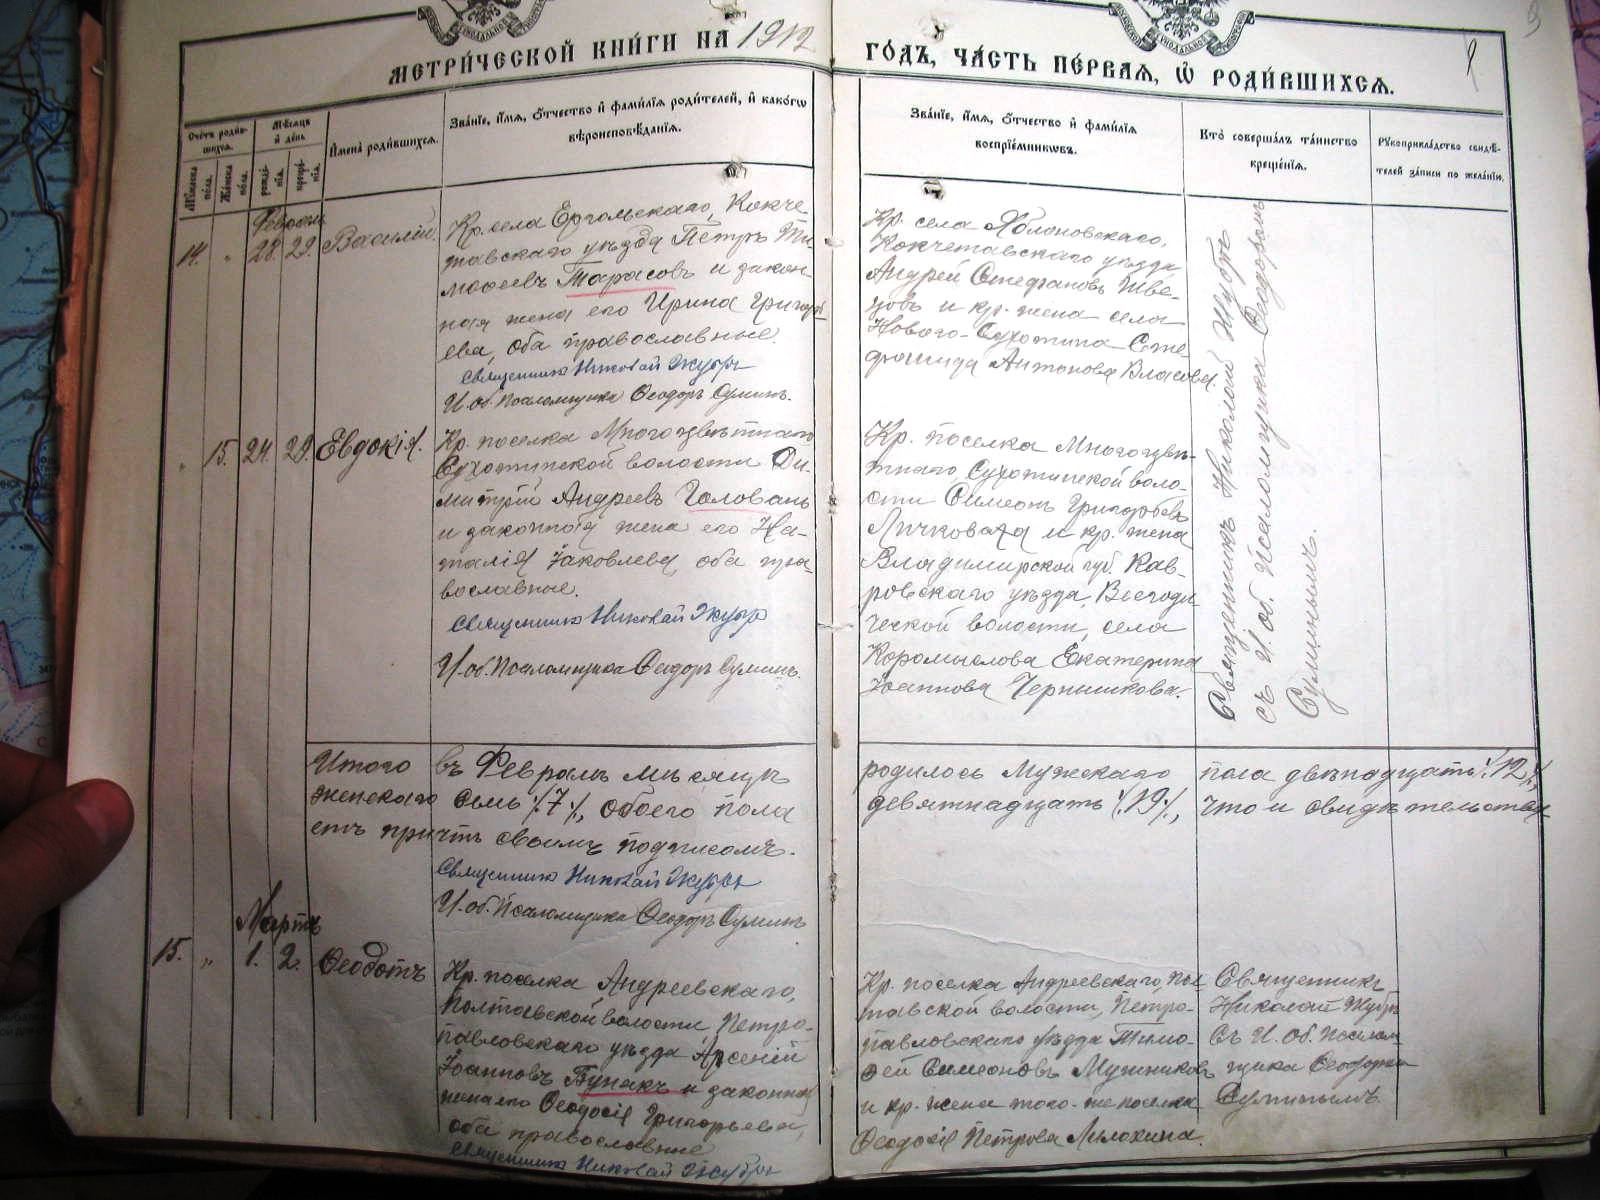 МЕТРИ́ЧЕСКОЙ КНИ́ГИ НА 1912
ГО́ДЪ, ЧА́СТЬ ПЕ́РВАЯ, Ѡ РОДИ́ВШИХСЯ.
Сче́тъ роди́в-
шихся.
Му́жеска
по́ла.
Же́нска
по́ла.
Мѣ́сяцъ
и҆ де́нь
рожде́-
нїя.
креще́-
нїя.
И҆мена̀ роди́вшихся.
Зва́нїе, и҆́мя, ѻ҆́тчество и҆ фами́лїя роди́телей, и҆ како́гѡ
вѣроисповѣ́данїя.
Зва́нїе, и҆́мя, ѻ҆́тчество и҆ фами́лїя
воспрїе́мникѡвъ.
Кто̀ соверша́лъ та́инство
креще́нїя.
Рꙋкоприкла́дство свидѣ́-
телей за́писи по жела́нїю.
Февраль
14. „ 28. 29. Василій.
Кр. села Ергольскаго, Кокче
тавскаго уѣзда Петръ Ти
моѳеевъ Тарасовъ и закон-
ная жена его Ирина Григорь
ева, оба православные.
Священникъ Николай Якубъ
И. об. Псаломщика Ѳеодоръ Суминъ.
Кр. села Яблоновскаго,
Кокчетавскаго уѣзда
Андрей Стефановъ Шве-
цовъ и кр. жена села
Новаго-Сухотина Сте-
фанида Антонова Власова.
„ 15. 24. 29. Евдокія.
Кр. поселка Многоцвѣтнаго
Сухотинской волости Ди-
митрій Андреевъ Головань
и законная жена его На-
талія Іаковлева, оба пра-
вославные.
Священникъ Николай Якубъ
И. об. Псаломщика Ѳеодоръ Суминъ.
Кр. поселка Многоцвѣ-
тнаго, Сухотинской воло-
сти Симеонъ Григорьевъ
Личковаха и кр. жена
Владимирской губ. Ков-
ровскаго уѣзда, Всегоди
ческой волости, села
Коромыслова Екатерина
Іоаннова Чернышкова.
Священникъ Николай Якубъ
съ И. об. Псаломщика Ѳеодоромъ
Суминымъ.
Итого въ Февралѣ мѣсяцѣ родилось Мужескаго пола двѣнадцать /.12./,
женскаго семь /.7./, обоего пола девятнадцать /.19./, что и свидѣтельству-
етъ причтъ своимъ подписомъ.
Священникъ Николай Якубъ
И. об. Псаломщика Ѳеодоръ Суминъ
Мартъ
15. „ 1. 2. Ѳеодотъ
Кр. поселка Андреевскаго,
Полтавской волости, Петро-
павловскаго уѣзда Арсеній
Іоанновъ Бунякъ и законная
жена его Ѳеодосія Григорьева,
оба православные
Священникъ Николай Якубъ
Кр. поселка Андреевскаго, Пол
тавской волости, Петро-
павловскаго уѣзда Тимо-
ѳей Симеоновъ Мушниковъ
и кр. жена того-же поселка
Ѳеодосія Петрова Милохина.
Священникъ
Николай Якубъ
съ И. Об. Псалом
щика Ѳеодоромъ
Суминымъ.